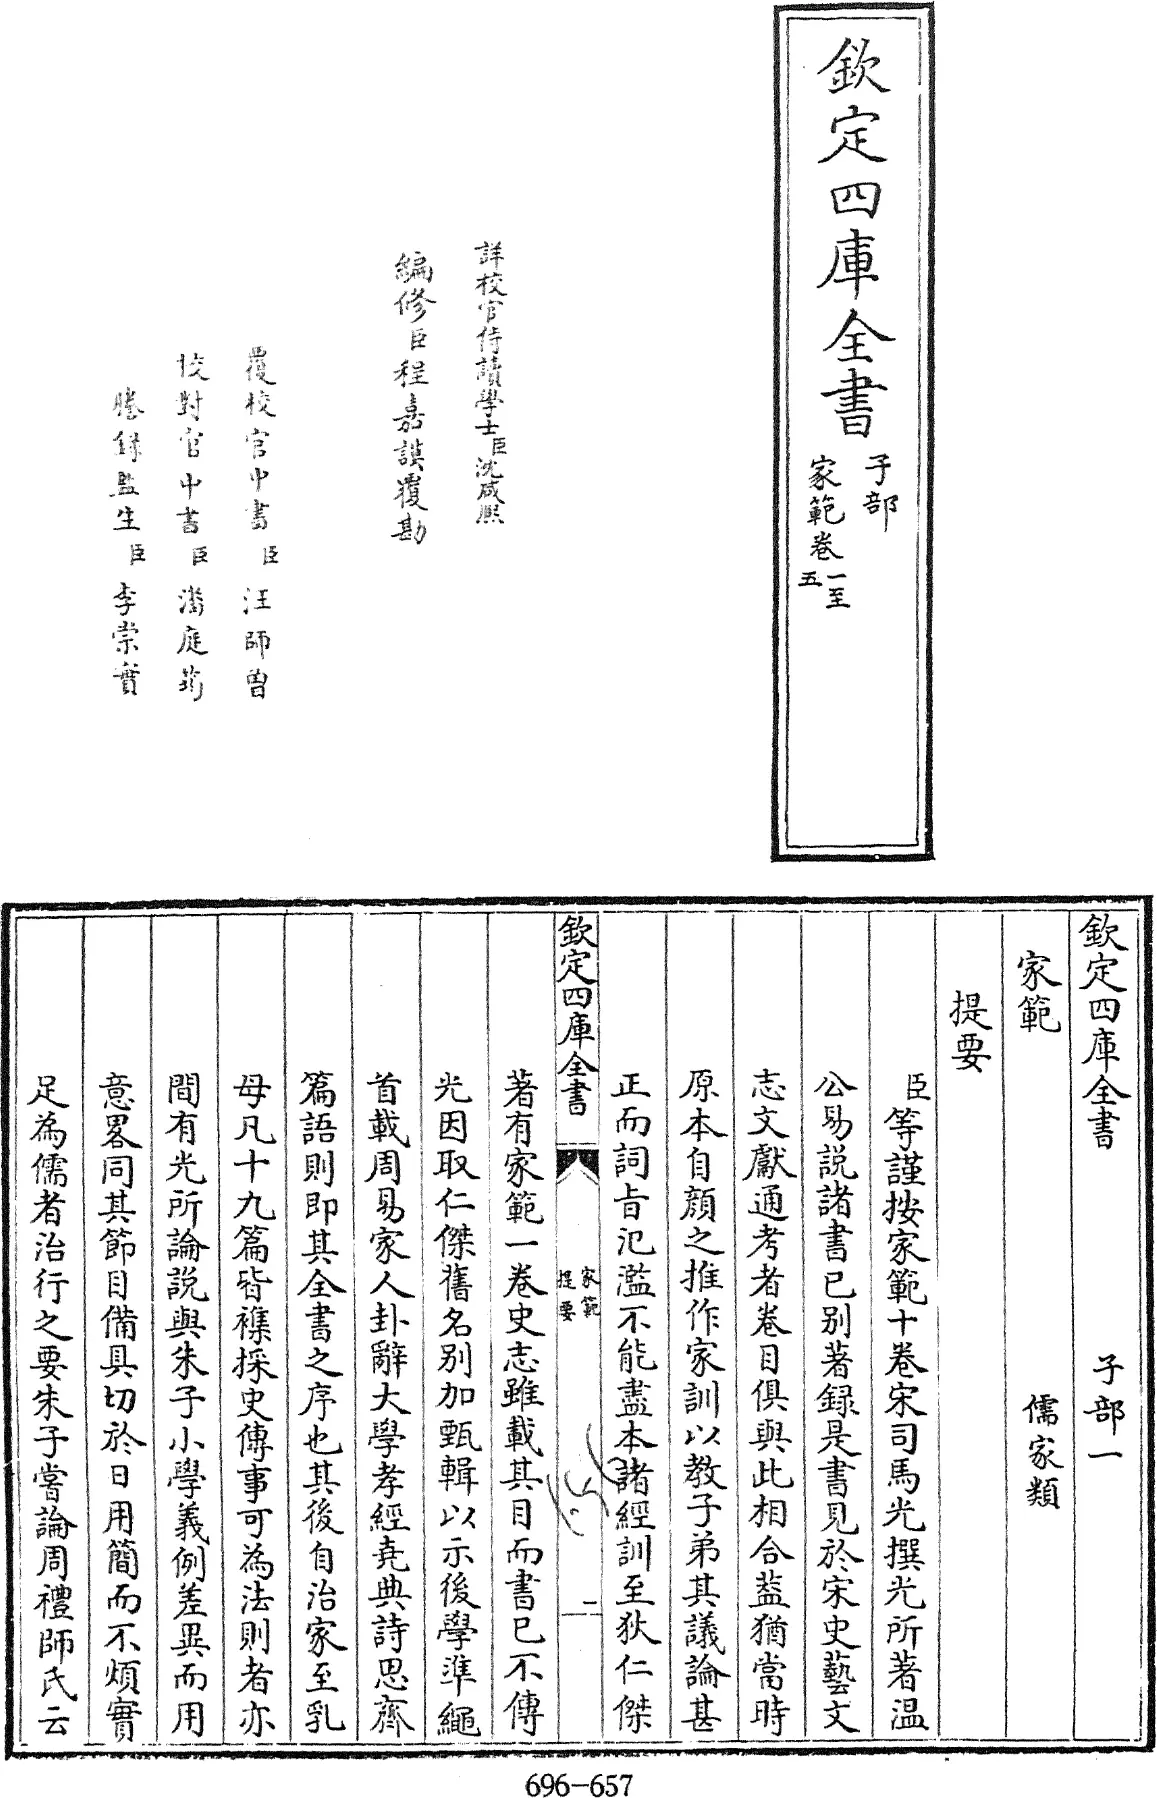 欽定四庫全書
子部
家範卷一至
五
詳校官侍讀學士臣沈咸熙
編修臣程嘉謨覆勘
覆校官中書臣汪師曾
校對官中書臣潘庭筠
謄録監生臣李崇實
欽定四庫全書　子部一
家範　儒家類
提要
臣等謹按家範十卷宋司馬光撰光所著温
公易説諸書已别著録是書見於宋史藝文
志文獻通考者卷目俱與此相合葢猶當時
原本自顔之推作家訓以教子弟其議論甚
正而詞旨氾濫不能盡本諸經訓至狄仁傑
欽定四庫全書
家範
提要
二
著有家範一卷史志雖載其目而書已不傳
光因取仁傑舊名别加甄輯以示後學準繩
首載周易家人卦辭大學孝經堯典詩思齊
篇語則即其全書之序也其後自治家至乳
母凡十九篇皆襍採史傳事可為法則者亦
間有光所論説與朱子小學義例差異而用
意畧同其節目備具切於日用簡而不煩實
足為儒者治行之要朱子嘗論周禮師氏云
696-657